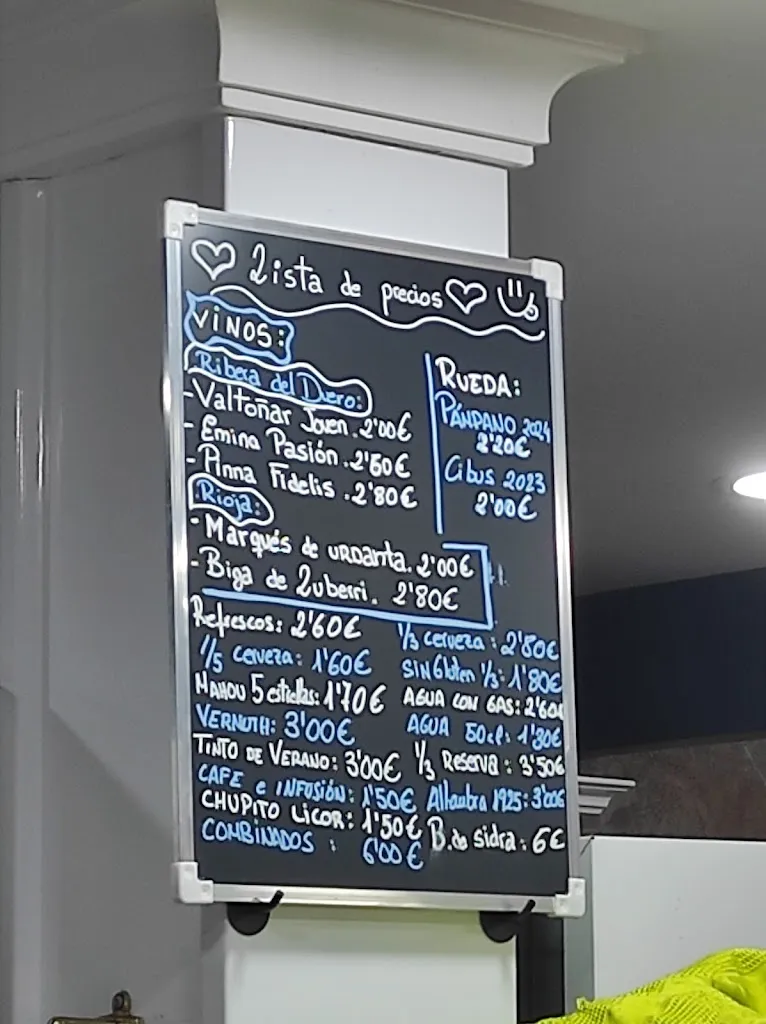 Lista de precios
VINOS:
Ribera del Duero:
- Valtoñar Joven . 2'00€
- Emina Pasión . 2'60€
- Pinna Fidelis . 2'80€
Rioja:
- Marqués de URDanta. 2'00€
- Biga de Luberri. 2'80€
RUEDA:
PÁMPANO 2024
2'20€
Cibus 2023
2'00€
Refrescos: 2'60€
1/5 cerveza: 1'60€
MAHOU 5 estrellas: 1'70€
VERMUTH: 3'00€
TINTO DE VERANO: 3'00€
CAFE e INFUSIÓN: 1'50€
CHUPITO LICOR: 1'50€
COMBINADOS : 6'00€
1/3 cerveza : 2'80€
SIN Gluten 1/3: 1'80€
AGUA CON GAS: 2'60€
AGUA 50cl: 1'30€
1/3 Reserva : 3'50€
Alhambra 1925: 3'00€
B. de sidra : 6€